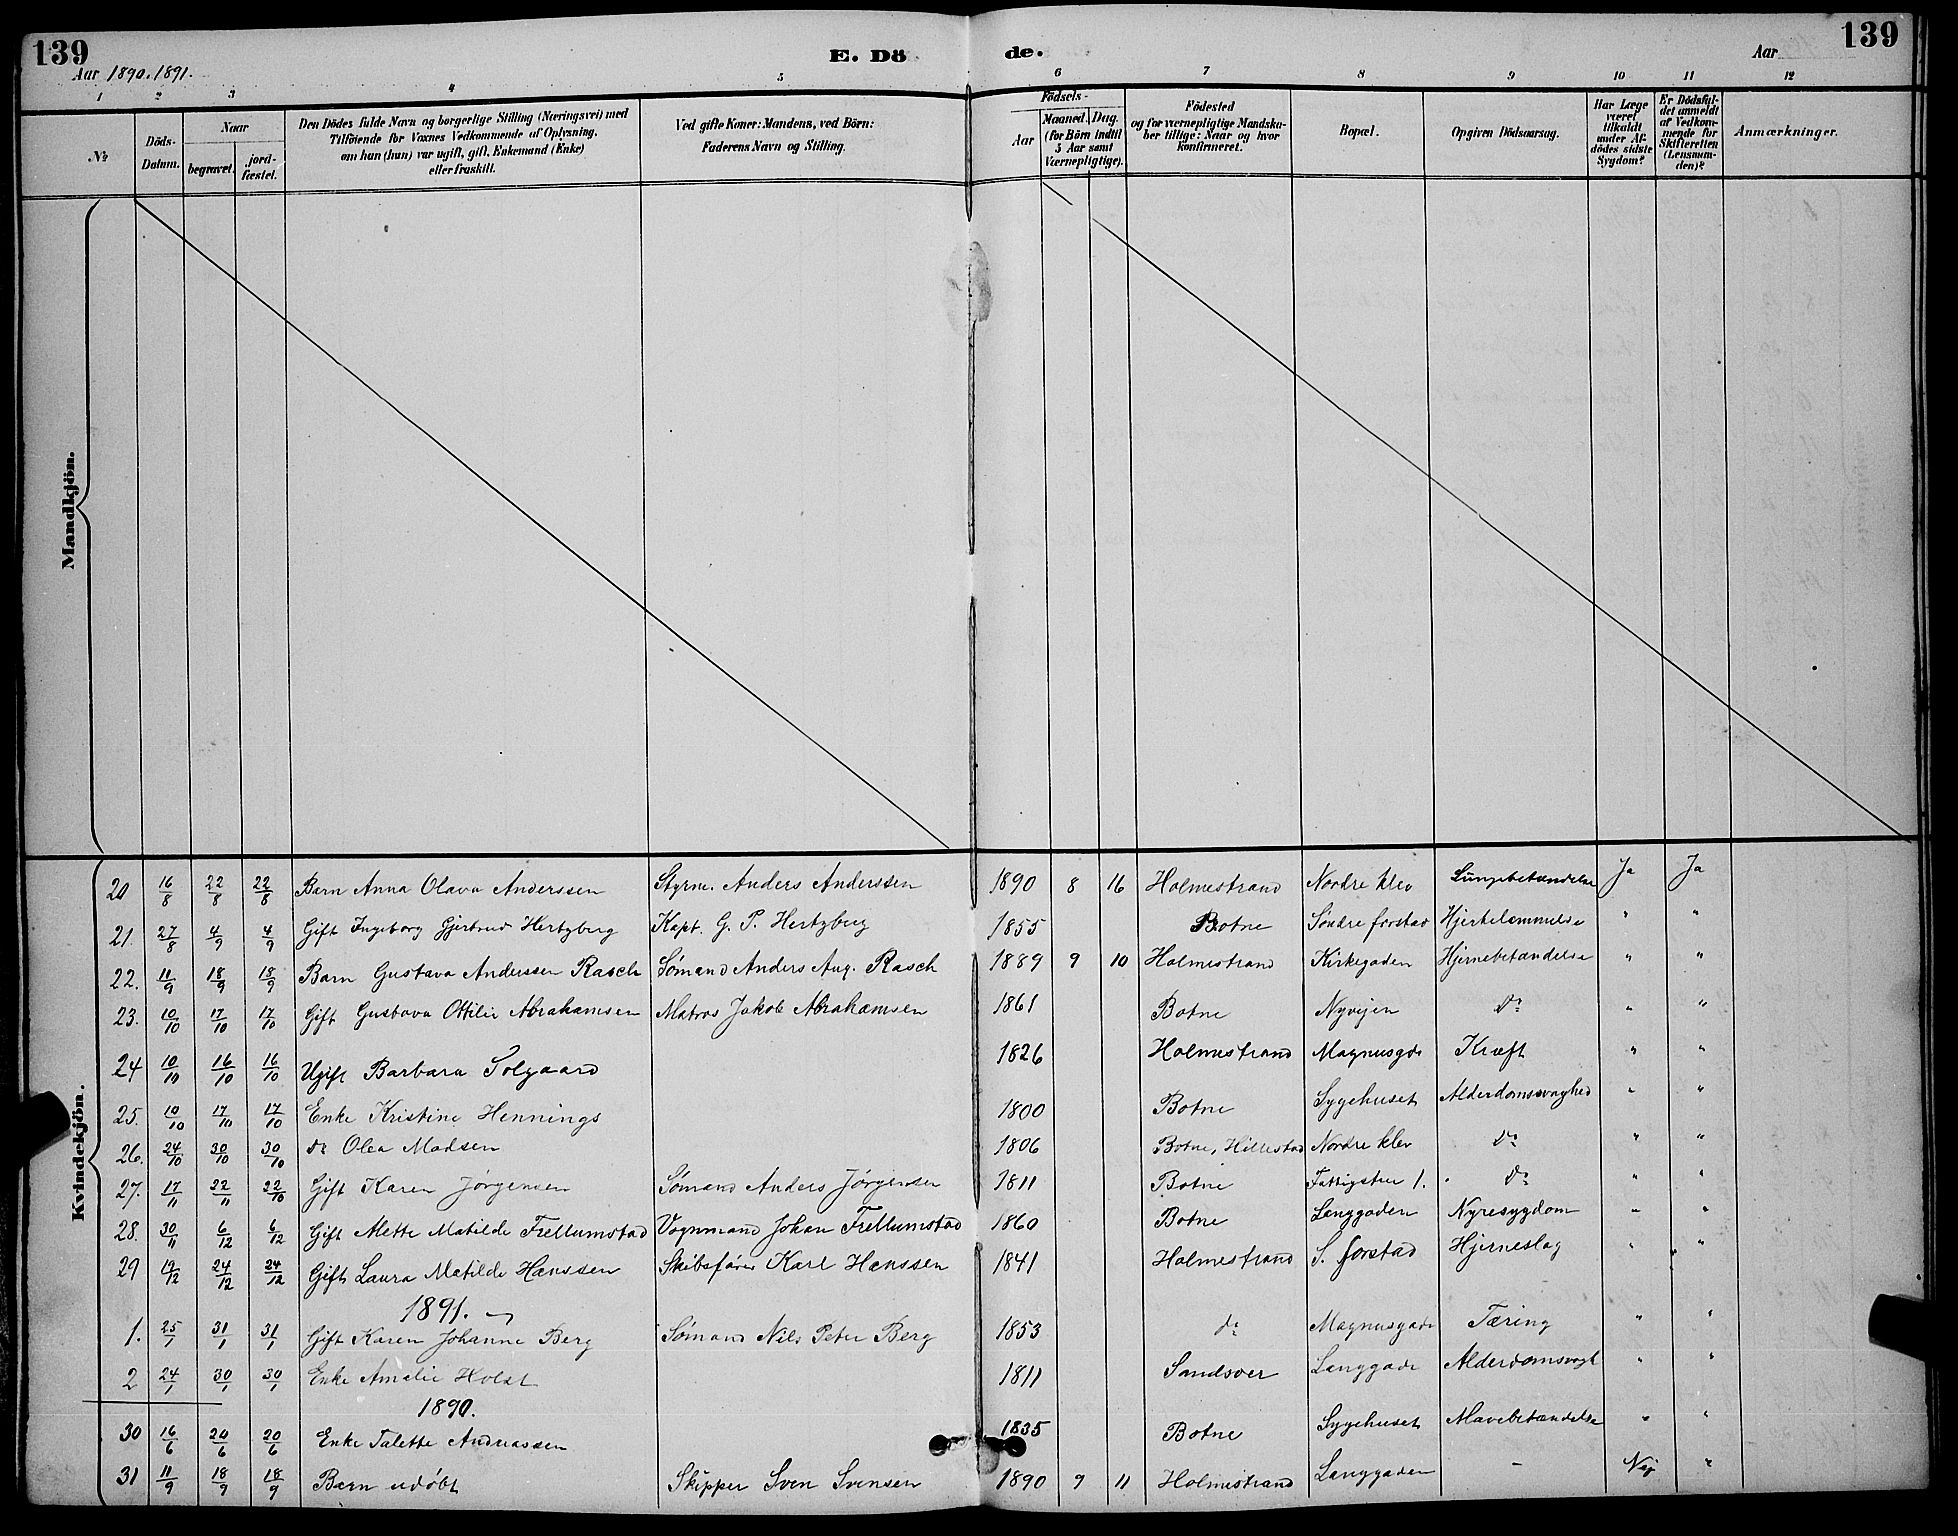 139
Aar 1890. 1891.
E. Dö de.
Aar
139
1 2 3 4 5 6 7 8 9 10 11 12
№
Döds-Datum.
Naar
begravet.
jord-fæstet.
Den Dödes fulde Navn og borgerlige Stilling (Næringsvei) med
Tilföiende for Voxnes Vedkommende af Oplysning,
om han (hun) var ugift, gift, Enkemand (Enke)
eller fraskilt.
Ved gifte Koner: Mandens, ved Börn:
Faderens Navn og Stilling.
Födsels-
Aar
Maaned. Dag.
(for Börn indtil
5 Aar samt
Værnepligtige).
Födested
og for værnepligtige Mandska-
ber tillige: Naar og hvor
konfirmeret.
Bopæl.
Opgiven Dödsaarsag.
Har Læge
været
tilkaldt
under Af-
dödes sidste
Sygdom?
Er Dödsfal-
det anmeldt
af Vedkom-
mende for
Skifteretten
(Lensman-
den)?
Anmærkninger.
Mandkjön.
Kvindekjön.
20 16/8 22/8 22/8 Barn Anna Olava Anderssen Styrm. Anders Anderssen 1890 8 16 Holmestrand Nordre klev Lungebetændelse Ja Ja
21. 27/8 4/9 4/9 Gift Ingeborg Gjertrud Hertzberg Kapt. G. P. Hertzberg 1855 Botne Søndre forstad Hjertelammelse " "
22. 11/9 18/9 18/9 Barn Gustava Anderssen Rasch Sømand Anders Aug. Rasch 1889 9 10 Holmestrand Kirkegaden Hjernebetændelse " "
23. 10/10 17/10 17/10 Gift Gustava Otilie Abrahamsen Matros Jakob Abrahamsen 1861 Botne Nyvejen do " "
24 10/10 16/10 16/10 Ugift Barbara Solgaard 1826 Holmestrand Magnusgde Kræft " "
25. 10/10 17/10 17/10 Enke Kristine Hennings 1800 Botne Sygehuset Alderdomssvaghed " "
26. 24/10 30/10 30/10 do Olea Madsen 1806 Botne, Hillestad Nordre klev do " "
27. 17/11 22/11 22/10 Gift Karen Jørgensen Sømand Anders Jørgensen 1811 Botne do " "
28. 30/11 6/12 6/12 Gift Alette Matilde Frellumstad Vognmand Johan Frellumstad 1860 Botne Langgaden Nyresygdom " "
29 19/12 24/12 24/12 Gift Laura Matilde Hanssen Skibsfører Karl Hanssen 1841 Holmestrand S. forstad Hjerneslag " "
1891.
1. 25/1 31/1 31/1 Gift Karen Johanne Berg Sømand Nils Peter Berg 1853 do Magnusgade Tæring " "
2 24/1 30/1 30/1 Enke Amalie Holst 1811 Sandsver Langgade Alderdomsvagh " "
1890.
30 16/6 20/6 20/6 Enke Talette Andreassen 1835 Botne Sygehuset Mavebetændelse " "
31 11/9 18/9 18/9 Barn udøbt Skipper Sven Svensen 1890 9 11 Holmestrand Langgaden - Nej "